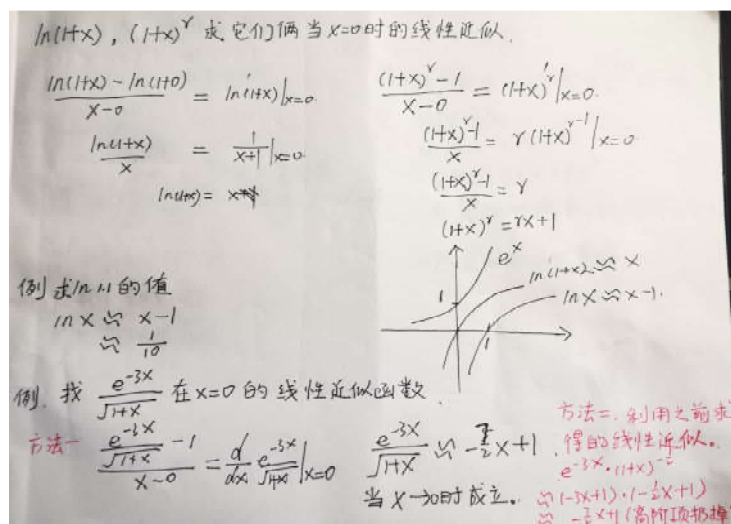 ln(1+x), (1+x)^r 求它们俩当x=0时的线性近似.
(ln(1+x) - ln(1+0))/(x-0) = ln'(1+x)|x=0.
ln(1+x)/x = 1/(x+1)|x=0.
ln(1+x) = x
((1+x)^r - 1)/(x-0) = (1+x)^r'|x=0.
((1+x)^r - 1)/x = r(1+x)^(r-1)|x=0
((1+x)^r - 1)/x = r
(1+x)^r = rx+1
e^x
ln(1+x) ≈ x
lnx ≈ x-1.
1
1
例 求ln1.1的值
lnx ≈ x-1
≈ 1/10
例. 找 e^(-3x)/√(1+x) 在x=0的线性近似函数.
方法一
(e^(-3x)/√(1+x) - 1)/(x-0) = d/dx e^(-3x)/√(1+x)|x=0
e^(-3x)/√(1+x) ≈ -7/2x+1.
当x→0时成立.
方法二. 利用之前求
得的线性近似.
e^(-3x)·(1+x)^(-1/2)
≈(-3x+1)·(-1/2x+1)
≈ -7/2x+1 (高阶项扔掉